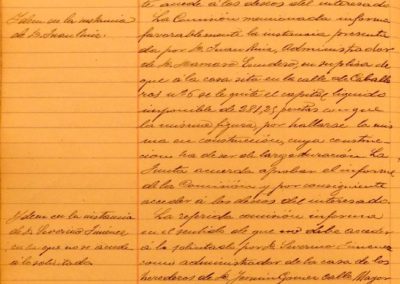 te accede á los deseos del interesado
Idem en la instancia
de D. Juan Ruiz.
La Comisión mencionada informa
favorablemente la instancia presenta
da por D. Juan Ruiz, Administrador
de D. Mamoso Escudero, en súplica de
que á la casa sita en la calle de Caballe
ros nº 6 se le quite el capital líquido
imponible de 281,25 pesetas con que
la misma figura, por hallarse la mis
ma en construcción, cuya construc
ción ha de ser de larga duración. La
Junta acuerda aprobar el informe
de la Comisión y por consiguiente
acceder á los deseos del interesado.
Idem en la instancia
de D. Severino Jiménez
en la que no se accede
á lo solicitado
La referida comisión informa
en el sentido de que no debe acceder
á lo solicitado por D. Severino Jimenez
como administrador de la casa de los
herederos de D. Fermín Gómez calle Mayor